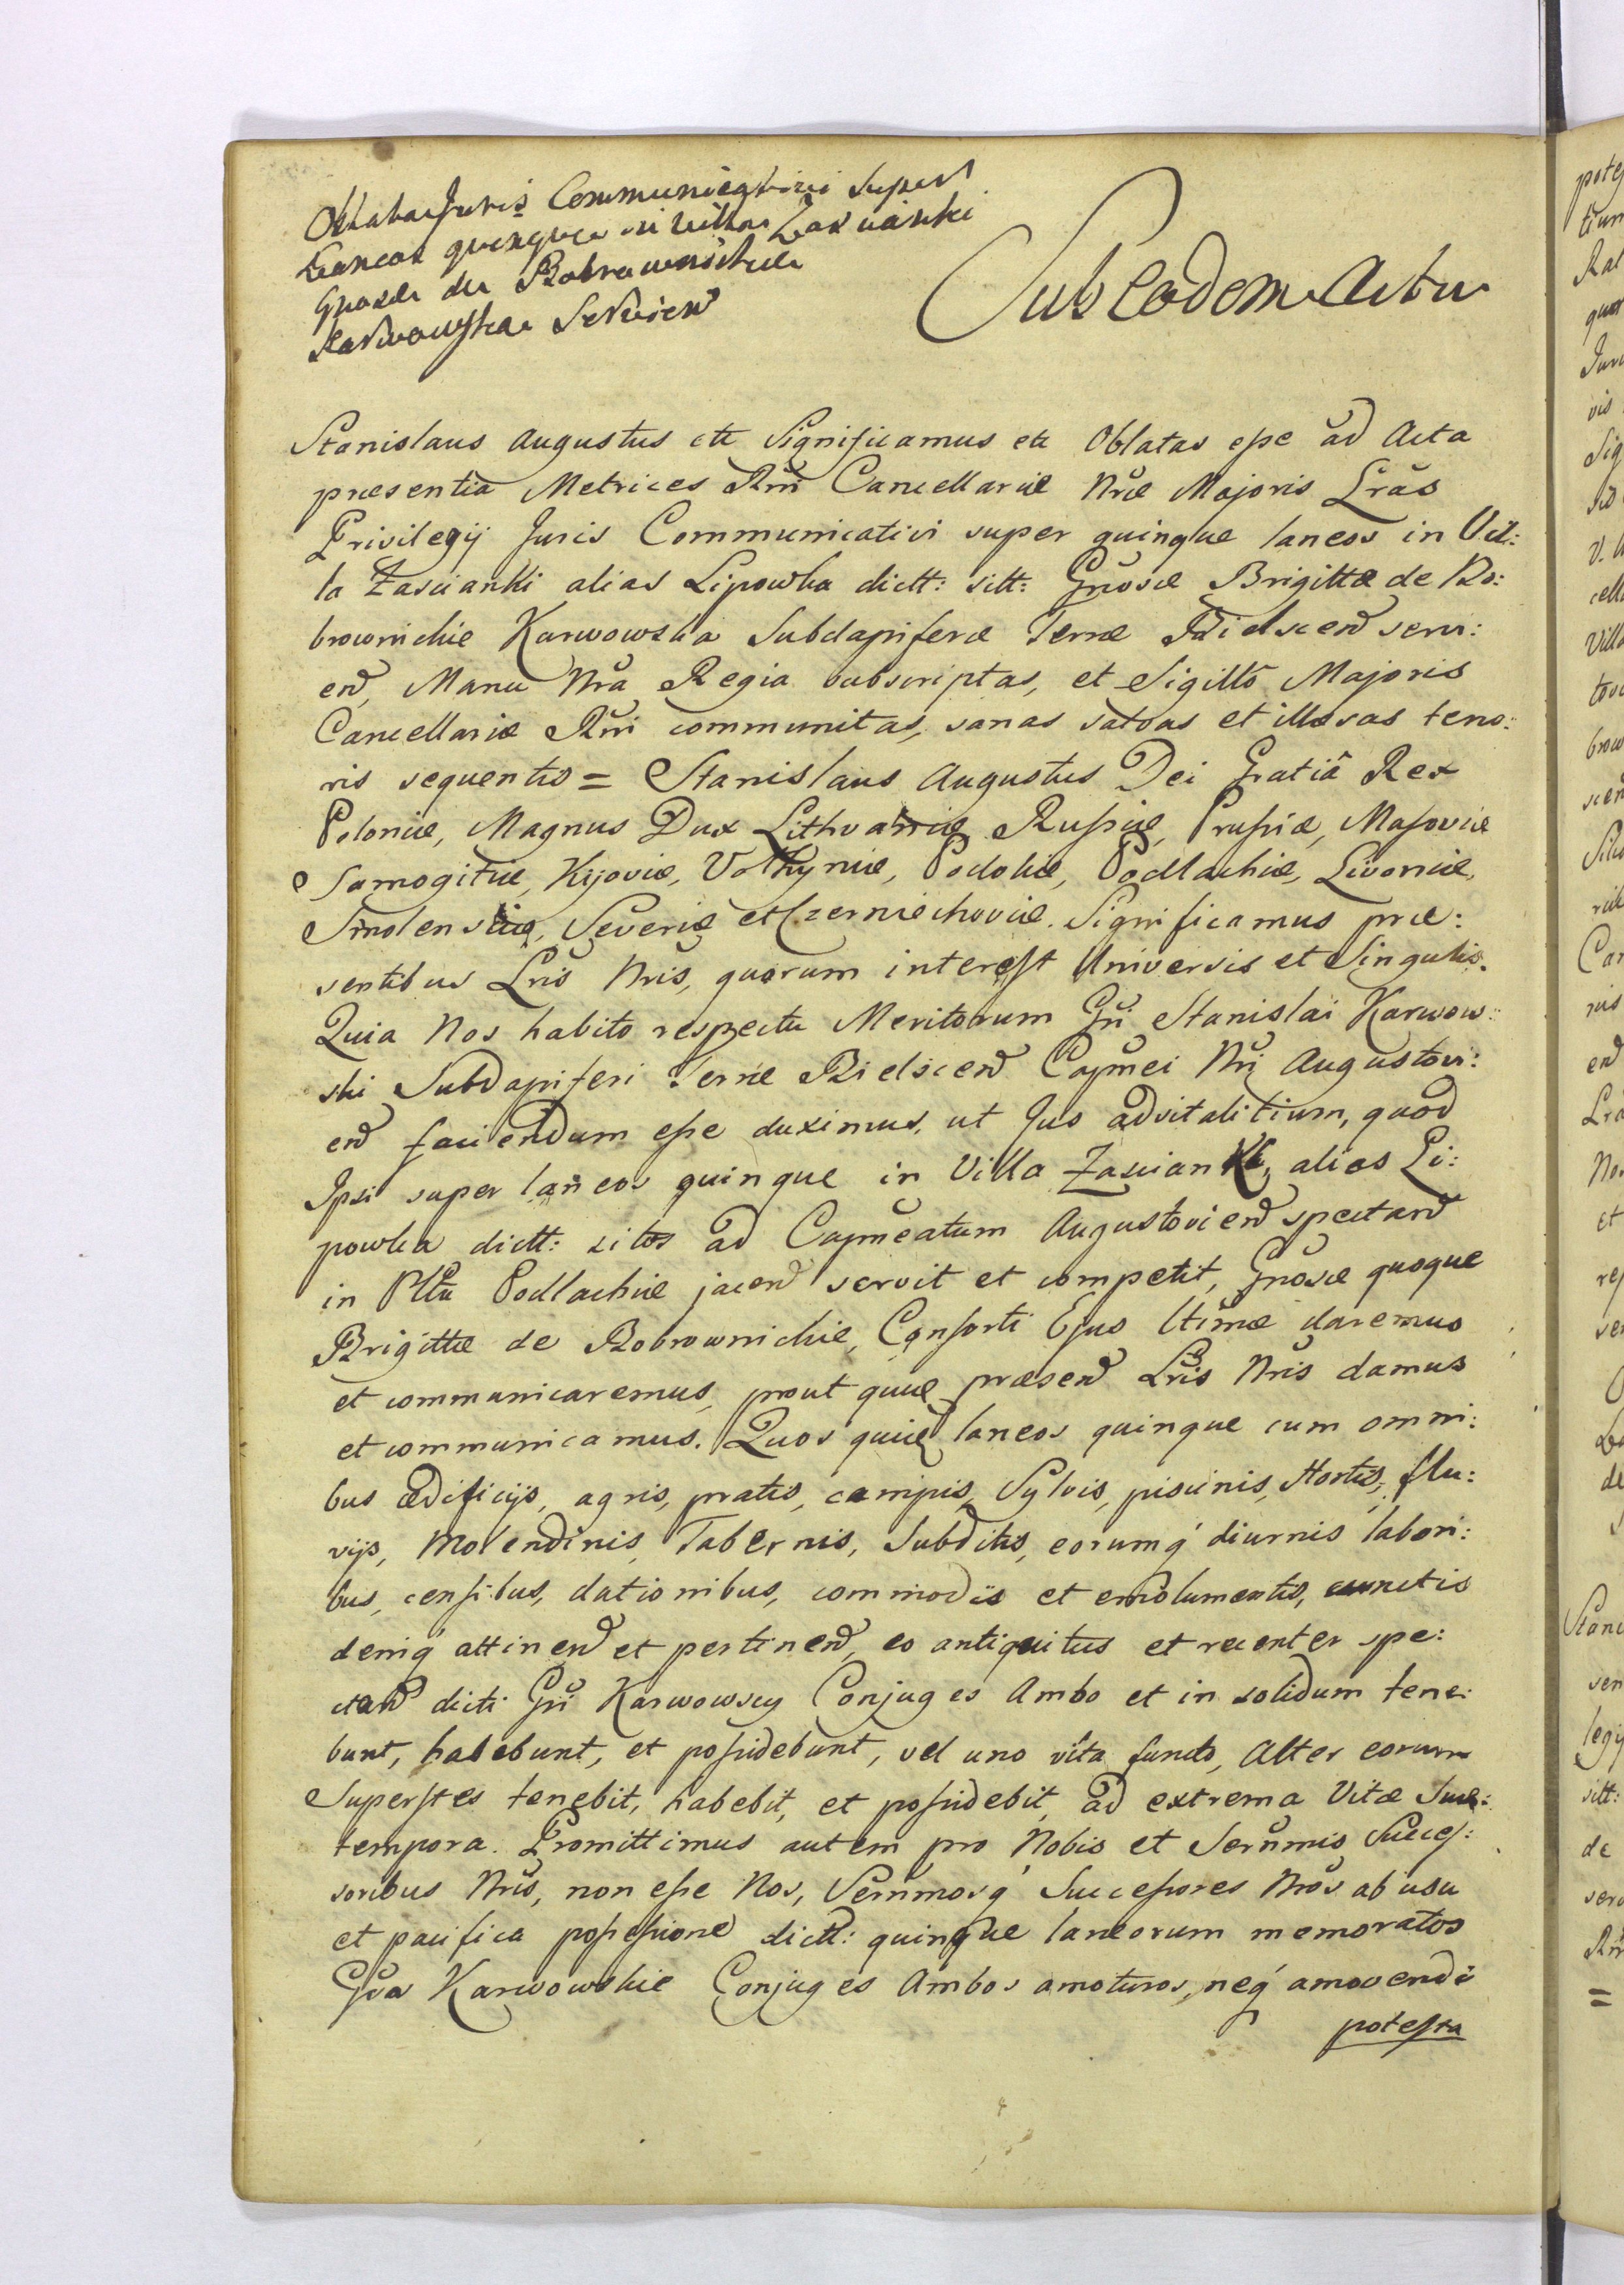 Oblata Juris Communicativi super
Laneos quinque in Villa Zascianki
Gnosæ de Bobrownickie
Karwowska Servien
Sub Eodem Actu
Stanislaus Augustus ett Significamus ett Oblatas esse ad Acta
præsentia Metrices Rni Cancellariæ Nræ Majoris Lras
Privilegij Juris Communicativi super quinque laneos in Vil:
la Zascianki alias Lipowka dictt: sitt: Gnosæ Brigittæ de Bo:
brownickie Karwowska Subdapiferæ Terræ Bielscen servi:
en, Manu Nra Regia subscriptas, et Sigillo Majoris
Cancellariæ Rni communitas, sanas salvas et illæsas teno:
ris sequentis = Stanislaus Augustus Dei Gratiâ Rex
Poloniæ, Magnus Dux Lithvaniæ Russiæ, Prussiæ, Masoviæ
Samogitiæ, Kijoviæ, Volhyniæ, Podoliæ, Podlachiæ, Livoniæ,
Smolensciæ, Severiæ et Czerniechoviæ. Significamus præ:
sentibus Lris Nris, quorum interest Universis et Singulis.
Quia Nos habito respectu Meritorum Gni Stanislai Karwow:
ski Subdapiferi Terræ Bielscen Capnei Nri Augustovi:
en faciendum esse duximus, ut Jus advitalitium, quod
Ipsi super laneos quinque in Villa Zascianki, alias Li:
powka dictt: sitos ad Capneatum Augustovien spectan
in Pltu Podlachiæ jacen servit et competit, Gnosæ quoque
Brigittæ de Bobrownickie, Consorti Ejus ltimæ daremus
et communicaremus, prout quidem præsen Lris Nris damus
et communicamus. Quos quid laneos quinque cum omni:
bus ædificijs, agris, pratis, campis, Sylvis, piscinis, Hortis, flu:
vijs, Molendinis, Tabernis, Subditis, eorumq́ diurnis labori:
bus, censibus, dationibus, commodis et emolumentis, cunctis
deniq́ attinen et pertinen, eo antiquitus et recenter spe:
ctan dicti Gni Karwowscy Conjuges Ambo et in solidum tene:
bunt, habebunt, et possidebunt, vel uno vita functo, Alter eorum
Superstes tenebit, habebit, et possidebit, ad extrema Vitæ Suæ:
tempora. Promittimus autem pro Nobis et Sernmis Succes:
soribus Nris, non esse Nos, Sernmosq́ Successores Nros ab usu
et pacifica possessione dictt: quinque laneorum memoratos
Gsa Karwowskie Conjuges Ambos amoturos, neq́ amovendi
potesta